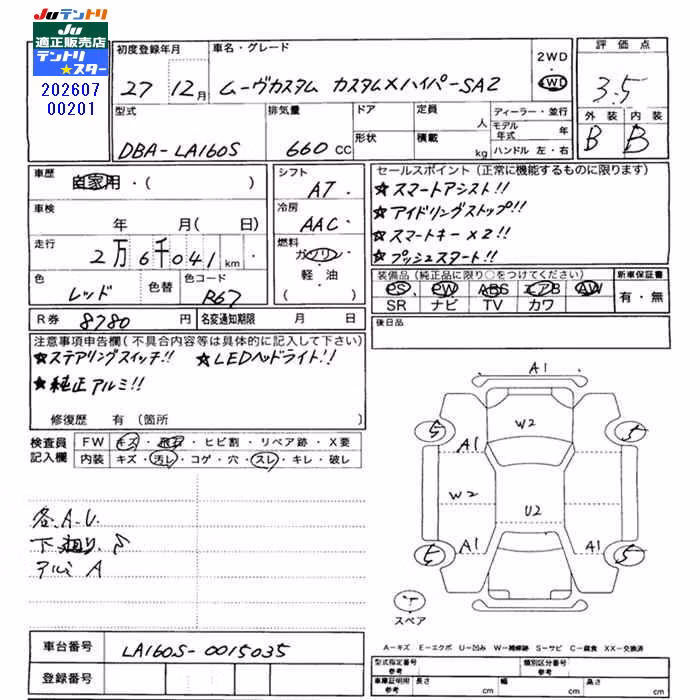 JUテントリ
JU
適正販売店
テントリ
★スター
202607
00201
初度登録年月
27 12月
車名・グレード
ムーヴカスタム カスタムXハイパーSA2
2WD
4WD
評価点
3.5
外装 内装
B B
型式
DBA-LA160S
排気量
660 cc
ドア
形状
定員 人
積載 kg
ディーラー・並行
モデル年式 年
ハンドル 左・右
車歴
自家用・( )
シフト
AT
セールスポイント(正常に機能するものに限ります)
★スマートアシスト!!
★アイドリングストップ!!
★スマートキー×2!!
★プッシュスタート!!
車検
年 月( 日)
冷房
AAC
走行
2万6千041 km
燃料
ガソリン
軽・油
( )
色
レッド
色替
色コード
R67
装備品(純正品に限り○をつけてください)
PS PW ABS エアB AW
SR ナビ TV カワ
新車保証書
有・無
R券 8780 円
名変通知期限 月 日
後日品
注意事項申告欄(不具合内容等は具体的に記入して下さい)
★ステアリングスイッチ!! ★LEDヘッドライト!!
★純正アルミ!!
修復歴 有(箇所 )
検査員
記入欄
FW キズ・飛石・ヒビ割・リペア跡・X要
内装 キズ・汚レ・コゲ・穴・スレ・キレ・破レ
各A.U.
下廻り S
アルミ A
A1
W2
5 5
A1
W2
U2
5 A1 A1 5
T
スペア
車台番号
LA160S-0015035
登録番号
A-キズ E-エクボ U-凹み W-補修跡 S-サビ C-腐食 XX-交換済
型式指定番号
参考
類別区分番号
参考
車庫証明用
参考
長さ cm 幅 cm 高さ cm